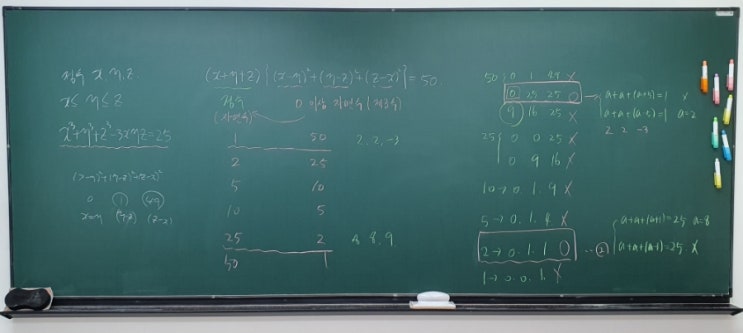 정수 x, y, z.
x ≤ y ≤ z
x³+y³+z³-3xyz=25
(x-y)²+(y-z)²+(z-x)²
0 1 49
x=y (y-z) (z-x)
(x+y+z){(x-y)²+(y-z)²+(z-x)²}=50.
정수 0 이상
(자연수)
1 50 2, 2, -3
2 25
5 10
10 5
25 2 8, 8, 9
50 1
50 0 1 49 X
0 25 25 O
9 16 25 X
25 0 0 25 X
0 9 16 X
10→0, 1, 9 X
5→0, 1, 4 X
2→0, 1, 1 O
1→0, 0, 1, X
a+a+(a+5)=1 X
a+a+(a-5)=1 a=2
2 2 -3
② a+a+(a+1)=25 a=8
a+a+(a-1)=25 X